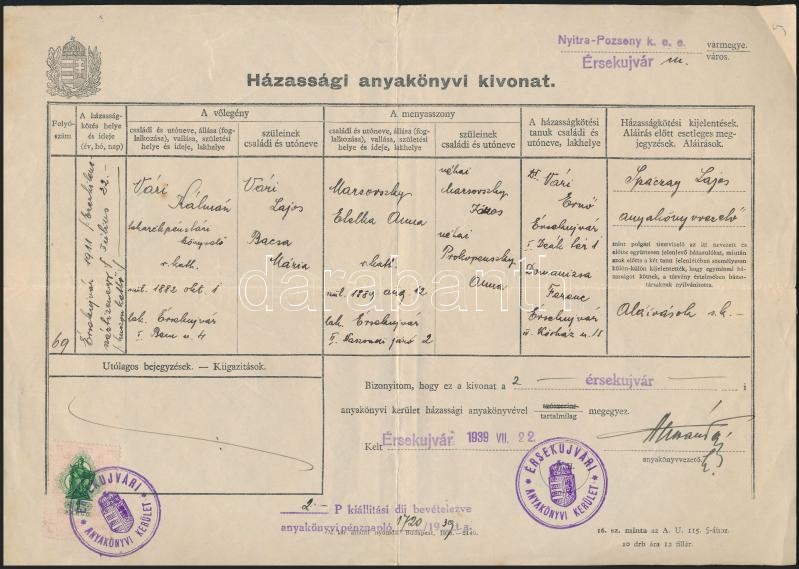 Nyitra-Pozsony k. e. e. vármegye.
Érsekujvár m. város.
Házassági anyakönyvi kivonat.
Folyó-
szám
A házasság-
kötés helye
és ideje
(év, hó, nap)
A vőlegény
családi és utóneve, állása (fog-
lalkozása), vallása, születési
helye és ideje, lakhelye
szüleinek
családi és utóneve
A menyasszony
családi és utóneve, állása (fog-
lalkozása), vallása, születési
helye és ideje, lakhelye
szüleinek
családi és utóneve
A házasságkötési
tanuk családi és
utóneve, lakhelye
Házasságkötési kijelentések.
Aláírás előtt esetleges meg-
jegyzések. Aláírások.
69
Érsekujvár 1911
Július 22.-
/huszonkettő/
Vári
Kálmán
takarékpénztári
könyvelő
r. kath.
szül. 1882 okt. 1
lak. Érsekujvár
4
Vári
Lajos
Bacsa
Mária
Marsovszky
Etelka Anna
r. kath.
aug. 12
lak. Érsekujvár
2
néhai
Marsovszky
János
néhai
Prokopenszky
Anna
Dr. Vári
Ernő
Érsekujvár
Deák tér 1
Ferenc
Érsekujvár
Kórház u. 18
Lajos
anyakönyvvezető
mint polgári tisztviselő az itt nevezett és
előtte együttesen jelenlevő házasulókat, miután
azok előtte a két tanú jelenlétében személyesen
külön-külön kijelentették, hogy egymással házas-
ságot kötnek, a törvény értelmében házas-
társaknak nyilvánította.
Aláírások s. k. -
Utólagos bejegyzések. — Kiigazitások.
Bizonyitom, hogy ez a kivonat a 2 — érsekujvár — i
anyakönyvi kerület házassági anyakönyvével szószerint megegyez.
tartalmilag
Kelt Érsekujvár 1939 VII. 22.
anyakönyvvezető
ÉRSEKUJVÁRI
ANYAKÖNYVI KERÜLET
ÉRSEKUJVÁRI
ANYAKÖNYVI KERÜLET
2.- P kiállitási dij bevételezve
anyakönyvi pénznapló 1720/1939 t.a.
16. sz. minta az A. U. 115. §-ához.
10 drb ára 12 fillér.
darabanth